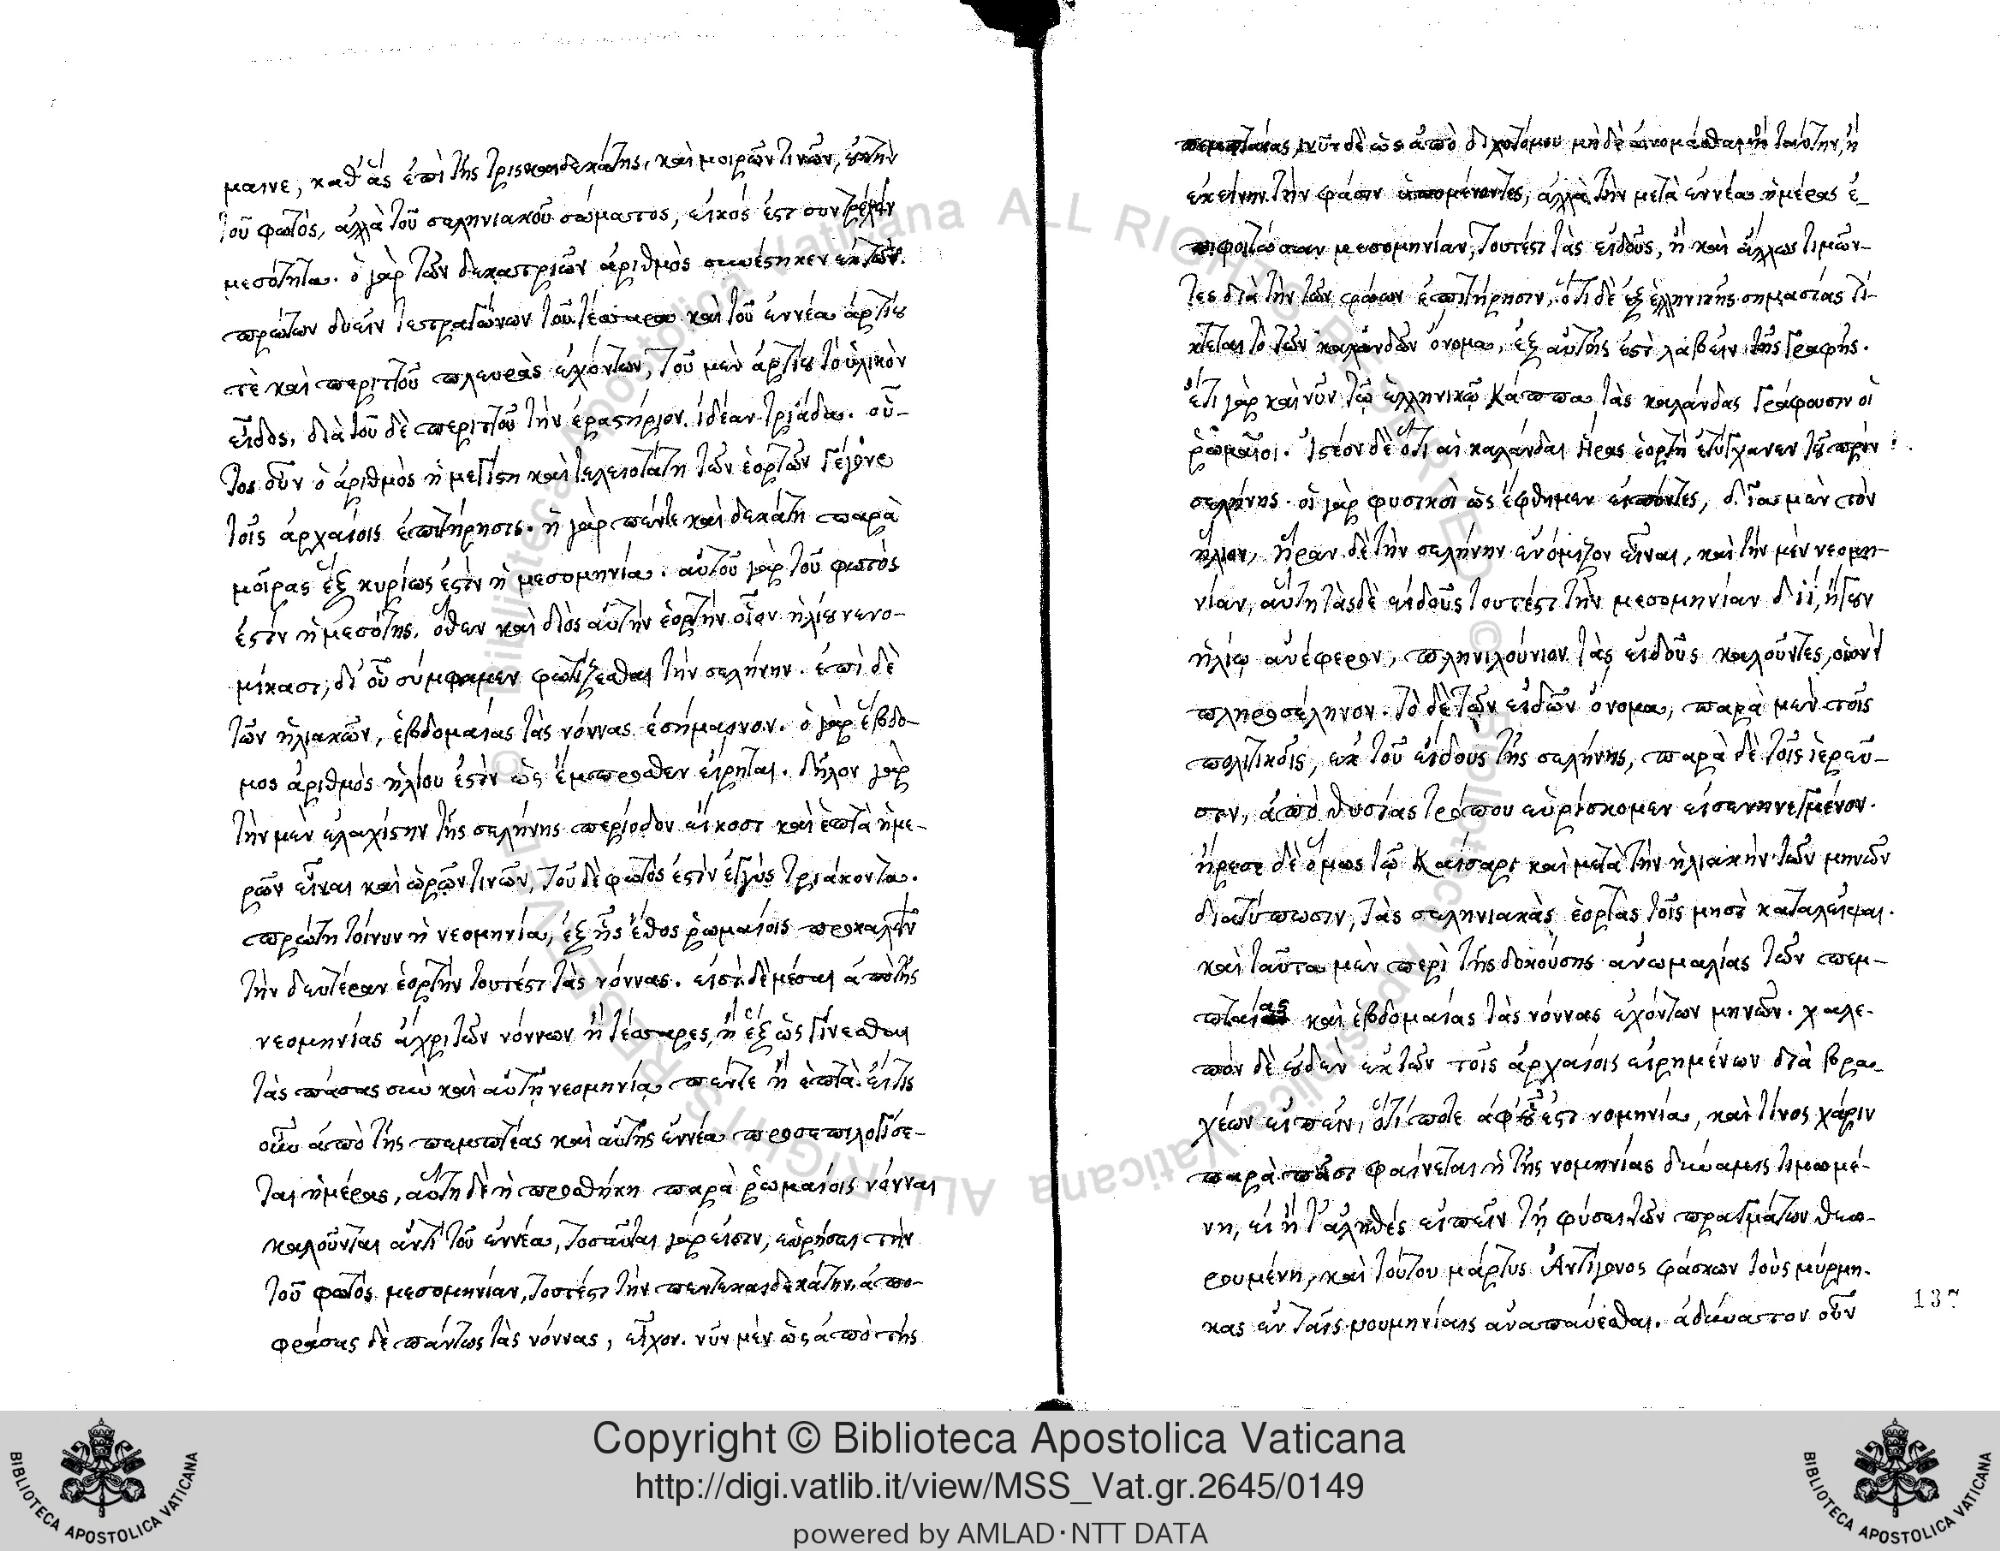 μαινε, καθ' ἃς ἐπὶ τῆς τρισκαιδεκάτης, καὶ μοιρῶν τινῶν,
τοῦ φωτὸς, ἀλλὰ τοῦ σεληνιακοῦ σώματος, εἰκός ἐστι συντρέχειν
μεσότητα. ὁ γὰρ τῶν δεκατριῶν ἀριθμὸς συνέστηκεν ἐκ τῶν
πρώτων δυεῖν τετραγώνων τοῦ τέσσαρα καὶ τοῦ ἐννέα ἀρτίου
τὲ καὶ περιττοῦ πλευρὰς ἐχόντων, τοῦ μὲν ἀρτίου τὸ ὑλικὸν
εἶδος, διὰ τοῦ δὲ περιττοῦ τὴν ἐραστήριον ἰδέαν τριάδα. οὗ-
τος οὖν ὁ ἀριθμὸς ἡ μεγίστη καὶ τελειοτάτη τῶν ἑορτῶν γέγονε
τοῖς ἀρχαίοις ἐπιτήρησις. ἡ γὰρ πέντε καὶ δεκάτη παρὰ
μοίρας ἓξ κυρίως ἐστὶν ἡ μεσομηνία. αὐτοῦ γὰρ τοῦ φωτὸς
ἐστὶν ἡ μεσότης. ὅθεν καὶ διὸς αὐτὴν ἑορτὴν οἷον ἡλίου νενο-
μίκασι, δι' οὗ σύμφαμεν φωτίζεσθαι τὴν σελήνην. ἐπὶ δὲ
τῶν ἡλιακῶν, ἑβδομαίας τὰς νόννας ἐσήμαινον. ὁ γὰρ ἕβδο-
μος ἀριθμὸς ἡλίου ἐστὶν ὡς ἔμπροσθεν εἴρηται. δῆλον γὰρ
τὴν μὲν ἐλαχίστην τῆς σελήνης περίοδον εἴκοσι καὶ ἑπτὰ ἡμε-
ρῶν εἶναι καὶ ὡρῶν τινῶν, τοῦ δὲ φωτός ἐστὶν ἐγγὺς τριάκοντα.
πρώτη τοίνυν ἡ νεομηνία, ἐξ ἧς ἔθος ῥωμαίοις προκαλεῖν
τὴν δευτέραν ἑορτὴν τουτέστι τὰς νόννας. εἰσὶ δὲ μέσαι ἀπὸ τῆς
νεομηνίας ἄχρι τῶν νόννων ἢ τέσσαρες, ἢ ἓξ ὡς γίνεσθαι
τὰς πάσας σὺν καὶ αὐτῇ νεομηνίᾳ πέντε ἢ ἑπτά. εἴ τις
οὖν ἀπὸ τῆς πεμπτέας καὶ αὐτῆς ἐννέα προσεπιλογίσε-
ται ἡμέρας, αὕτη δὲ ἡ προσθήκη παρὰ ῥωμαίοις νόνναι
καλοῦνται ἀντὶ τοῦ ἐννέα, τοσαῦται γάρ εἰσιν, εὑρήσει τὴν
τοῦ φωτὸς μεσομηνίαν, τουτέστι τὴν πεντεκαιδεκάτην. ἀπο-
φράδας δὲ πάντως τὰς νόννας, εἶχον. νῦν μὲν ὡς ἀπὸ τῆς
πεμπταίας, νῦν δὲ ὡς ἀπὸ διχοτόμου μὴ δὲ ὀνομάσθαι ἢ ταύτην, ἢ
ἐκείνην τὴν φάσιν ὑπομένοντες, ἀλλὰ τὴν μετὰ ἐννέα ἡμέρας ἐ-
πιφοιτῶσαν μεσομηνίαν, τουτέστι τὰς εἰδοὺς, ἢ καὶ ἄλλως τιμῶν-
τες διὰ τὴν τῶν ὡρῶν ἐπιτήρησιν, ὅτι δὲ ἐξ ἑλληνικῆς σημασίας τί-
κτεται τὸ τῶν καλανδῶν ὄνομα, ἐξ αὐτῆς ἐστὶ λαβεῖν τῆς γραφῆς.
ἔτι γὰρ καὶ νῦν τῷ ἑλληνικῷ Κάππα τὰς καλάνδας γράφουσιν οἱ
ῥωμαῖοι. ἰστέον δὲ ὅτι αἱ καλάνδαι ἥρας ἑορτὴ ἐτύγχανεν τουτέστιν
σελήνης. οἱ γὰρ φυσικοὶ ὡς ἔφθημεν εἰπόντες, δία μὲν τὸν
ἥλιον, ἥραν δὲ τὴν σελήνην ἐνόμιζον εἶναι, καὶ τὴν μὲν νεομη-
νίαν, αὐτῇ τὰς δὲ εἰδοὺς τουτέστι τὴν μεσομηνίαν διὶ, ἤγουν
ἡλίῳ ἀνέφερον, πληνιλούνιον τὰς εἰδοὺς καλοῦντες, οἱονεὶ
πληροσέληνον. τὸ δὲ τῶν εἰδῶν ὄνομα, παρὰ μὲν τοῖς
πολιτικοῖς, ἐκ τοῦ εἴδους τῆς σελήνης, παρὰ δὲ τοῖς ἱερεῦ-
σιν, ἀπὸ θυσίας τρόπου εὑρίσκομεν εἰσενηνεγμένον.
ἤρεσε δὲ ὅμως τῷ Καίσαρι καὶ μετὰ τὴν ἡλιακὴν τῶν μηνῶν
διατύπωσιν, τὰς σεληνιακὰς ἑορτὰς τοῖς μησὶ καταλεῖψαι.
καὶ ταῦτα μὲν περὶ τῆς δοκούσης ἀνωμαλίας τῶν πεμ-
πταίας καὶ ἑβδομαίας τὰς νόννας ἐχόντων μηνῶν. χαλε-
πὸν δὲ οὐδὲν ἐκ τῶν τοῖς ἀρχαίοις εἰρημένων διὰ βρα-
χέων εἰπεῖν, ὅτι ποτε ἀφ' οὗ ἐστι νομηνία, καὶ τίνος χάριν
παρὰ πᾶσι φαίνεται ἡ τῆς νομηνίας δύναμις τιμωμέ-
νη, εἰ ἢ τ' ἀληθὲς εἰπεῖν τῇ φύσει τῶν πραγμάτων θεω-
ρουμένη, καὶ τούτου μάρτυς Ἀντίγονος φάσκων τοὺς μύρμη-
κας ἐν ταῖς νουμηνίαις ἀναπαύεσθαι. ἀδύνατον οὖν
137
Copyright © Biblioteca Apostolica Vaticana
http://digi.vatlib.it/view/MSS_Vat.gr.2645/0149
powered by AMLAD·NTT DATA
BIBLIOTECA APOSTOLICA VATICANA
BIBLIOTECA APOSTOLICA VATICANA